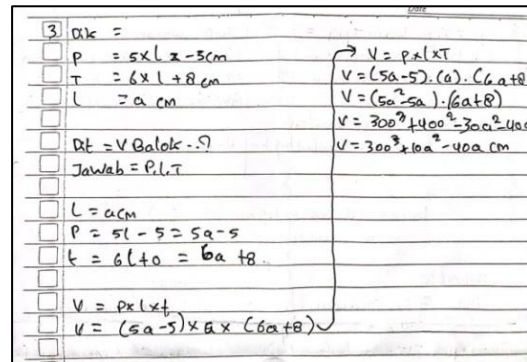 Date
3 Dik =
P = 5xl x -5cm
T = 6 x l + 8 cm
l = a cm
Dit = V Balok..?
Jawab = P.l.T
L = a cm
P = 5l - 5 = 5a - 5
t = 6l + 0 = 6a + 8
V = pxlxt
V = (5a-5) x a x (6a+8)
→ V = pxlxT
V = (5a-5).(a).(6a+8
V = (5a²-5a).(6a+8)
V = 300³+400²-30a²-40a
V = 300³+10a²-40a cm